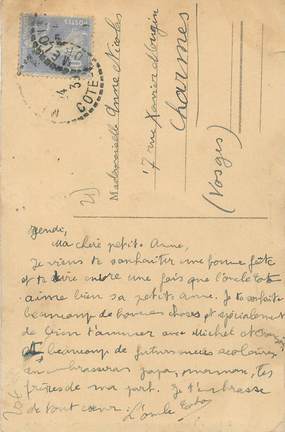 Mademoiselle Anne Nicolas
17 rue Xavier d'
Charmes
(Vosges)
POSTES
COTE
Jeudi,
Ma chère petite Anne,
Je viens te souhaiter une bonne fête
et te dire encore une fois que l'oncle Toto
aime bien sa petite Anne. Je te souhaite
beaucoup de bonnes choses et spécialement
de bien t'amuser avec Michel et
et beaucoup de futures scolaires
embrasseras papa, maman, tes
frères de ma part. Je t'embrasse
de tout coeur. L'oncle Toto